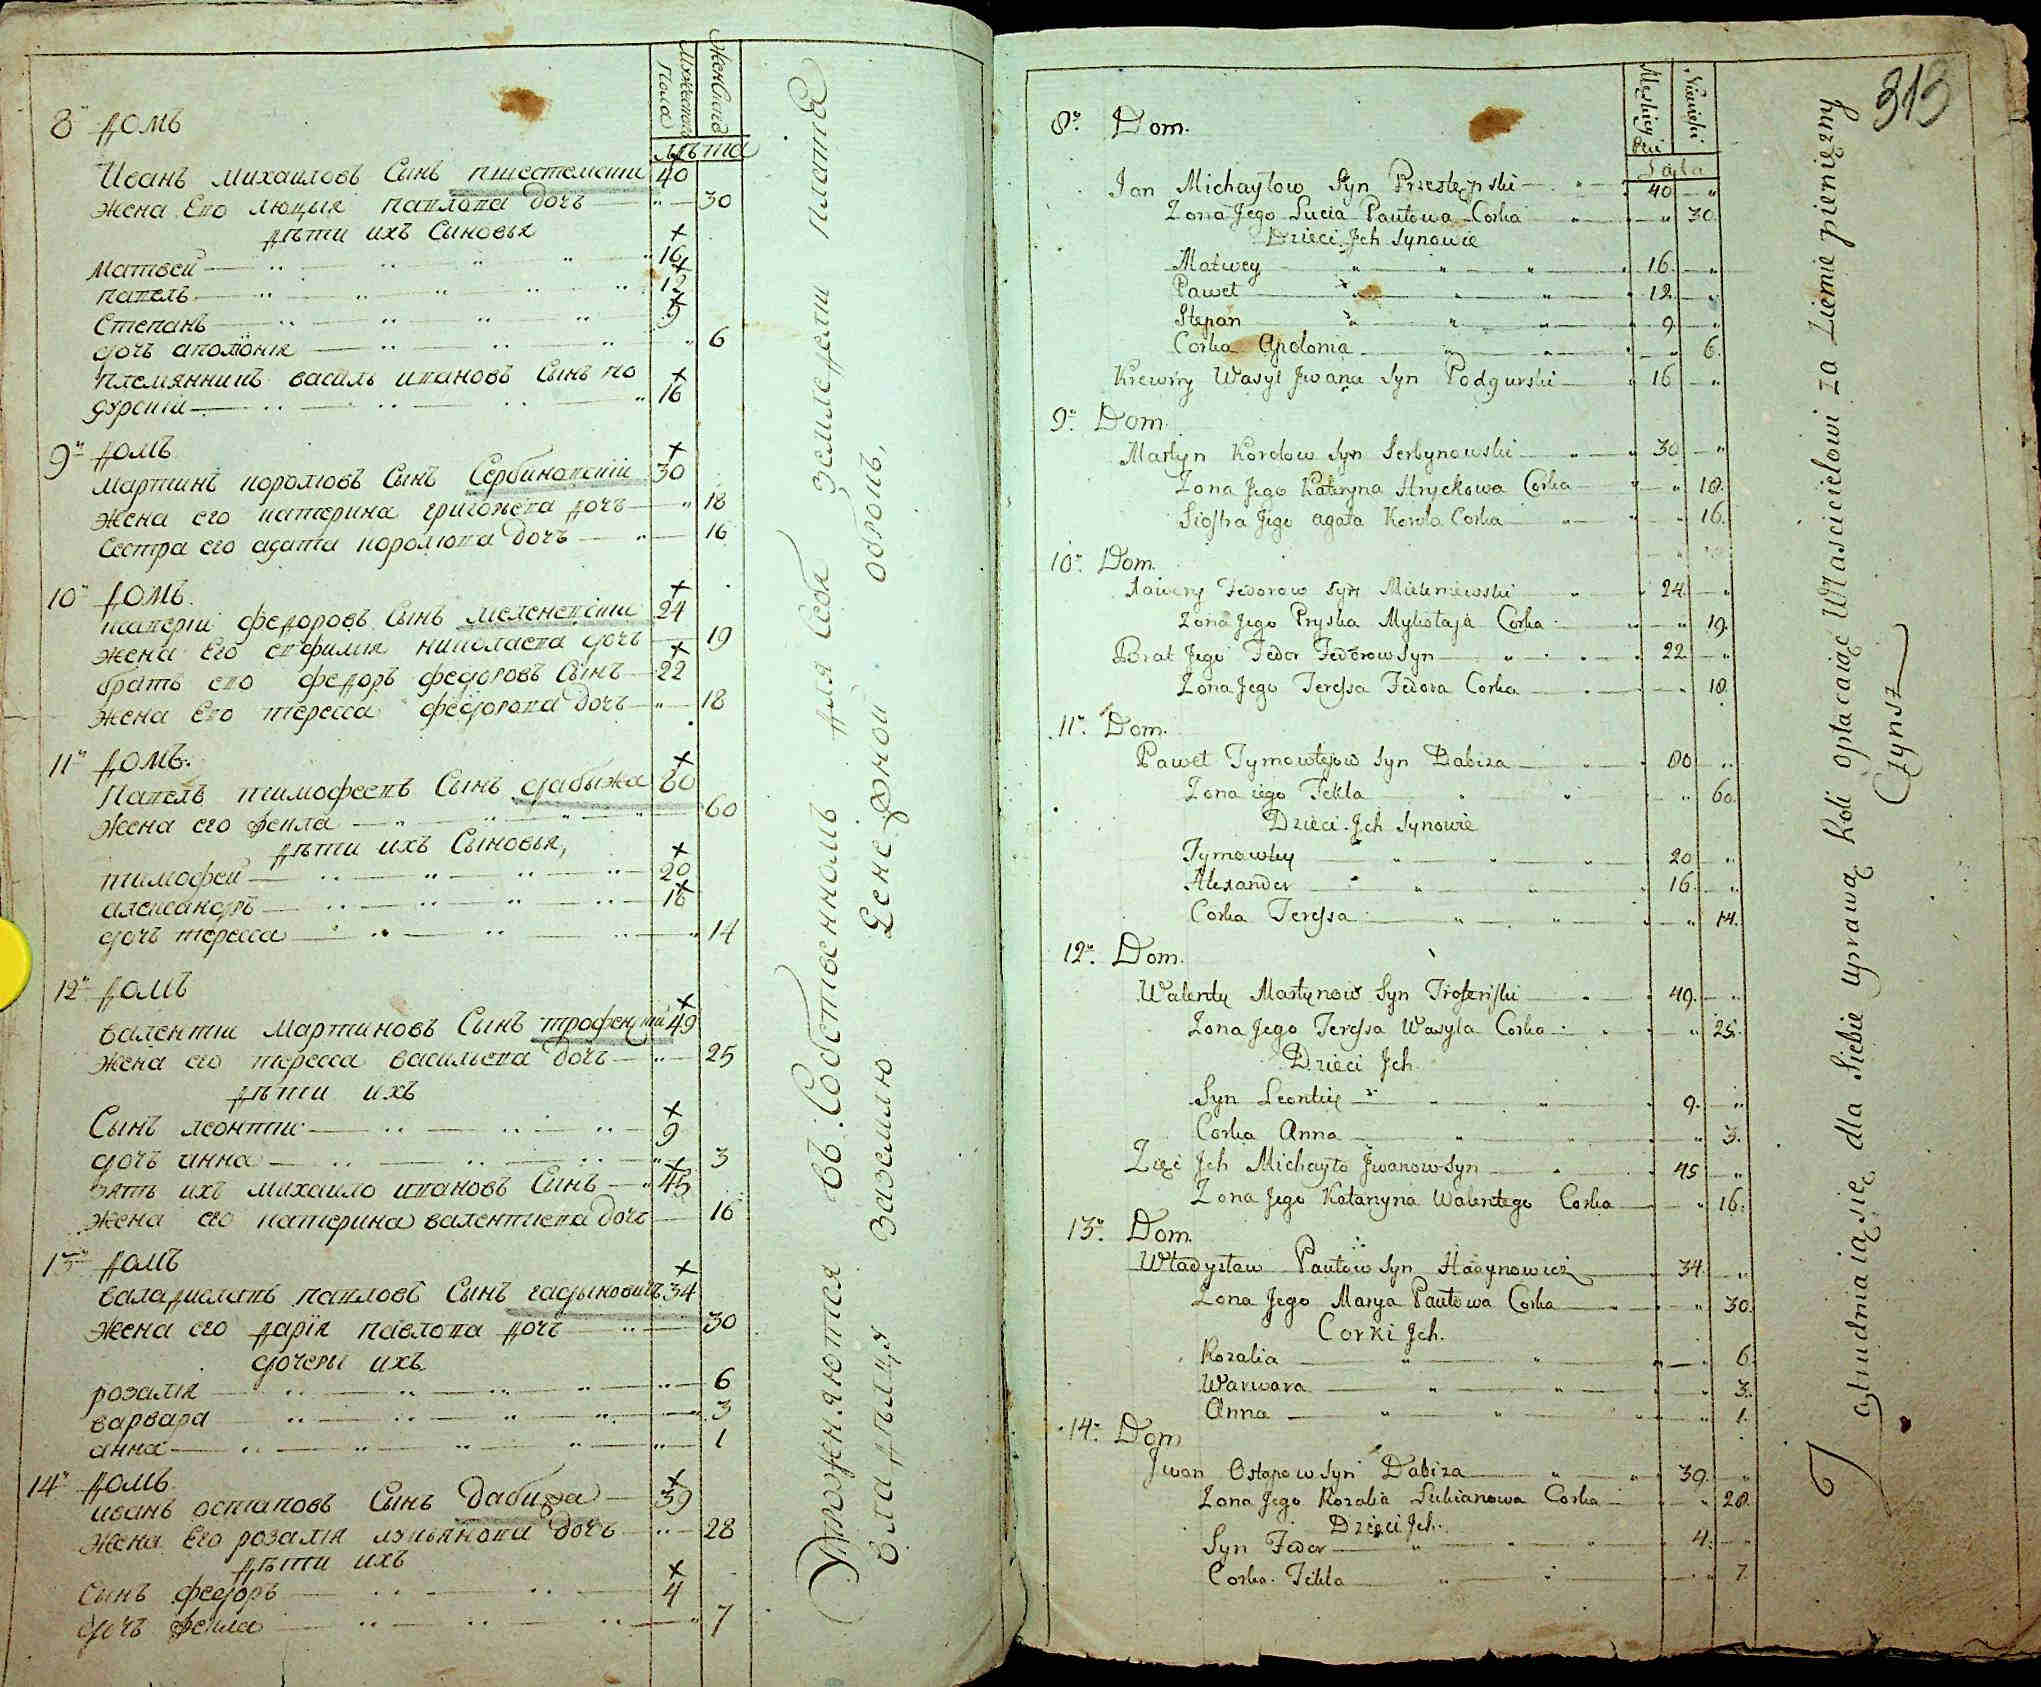 Мужеска пола
Женского
лѣта
8й домъ
Иванъ михаиловъ Сынъ 40
жена Его люцыя павлова дочь 30
дѣти ихъ Сыновья
матвей 16
павелъ 12
Степанъ 9
дочь аполонія 6
племянникъ василь ивановъ Сынъ по
дгурскій 16
9й домъ
мартинъ королювъ Сынъ Сербиновскій 30
жена его катерина григорьева дочь 18
Сестра его агата королюва дочь 16
10й домъ
ксаверіи федоровъ Сынъ меленевскіи 24
жена Его николаева дочь 19
братъ его федоръ федоровъ Сынъ 22
жена Его тересса федорова дочь 18
11й домъ.
Павелъ тимофеевъ Сынъ дабыжа 80
жена его фекла 60
дѣти ихъ Сыновья,
тимофей 20
александръ 16
дочь тересса 14
12й домъ
валентіи мартиновъ Сынъ 49
жена его тересса васильева дочь 25
дѣти ихъ
Сынъ леонтіи 9
дочь анна 3
зять ихъ михаило ивановъ Сынъ 45
жена его катерина валентіева дочь 16
13й домъ
валадиславъ павловъ Сынъ гадыновичъ 34
жена его дарія павлова дочь 30
дочеры ихъ
розалія 6
варвара 3
анна 1
14й домъ
иванъ остаповъ Сынъ дабижа 39
жена Его розалія лукьянова дочь 28
дѣти ихъ
Сынъ федоръ 4
дочь фекла 7
Упражняются въ Собственномъ для Себя земледелии платя
владѣльцу заземлю Денежной оброкъ.
313
Męskiey płci
Niewieści
Lata
8. Dom.
Jan Michayłow Syn Przestępski 40
Zona Jego Lucia Pawłowa Corka 30.
Dzieci Jch Synowie
Matwey 16.
Paweł 12.
Stepan 9.
Corka Apolonia 6.
Krewny Wasyl Jwana Syn Podgurski 16
9. Dom.
Martyn Korolow Syn Serbynowski 30
Zona Jego Kateryna Hryckowa Corka 18.
Siostra Jego agata Korola Corka 16.
10. Dom.
Xawery Fedorow Syn Mieleniewski 24.
Zona Jego Pryska Mykołaja Corka 19.
Brat Jego Fedor Fedorow Syn 22
Zona Jego Teressa Fedora Corka 18.
11. Dom.
Paweł Tymowtejow Syn Dabiza 80
Zona iego Tekla 60.
Dzieci Jch Synowie
Tymowtey 20
Alexander 16.
Corka Teressa 14.
12. Dom.
Walenty Martynow Syn 49.
Zona Jego Teressa Wasyla Corka 25.
Dzieci Jch
Syn Leontiy 9.
Corka Anna 3.
Zięć Jch Michayło Jwanow Syn 45
Zona Jego Katarzyna Walentego Corka 16.
13. Dom.
Władysław Pawłow Syn Hadynowicz 34.
Zona Jego Marya Pawłowa Corka 30.
Corki Jch.
Rozalia 6.
Warwara 3.
Anna 1.
14. Dom
Jwan Ostapow Syn Dabiza 39.
Zona Jego Rozalia Lukianowa Corka 28.
Dzieci Jch.
Syn Fedor 4.
Corka Tekla 7.
Zatrudniaią się dla Siebie uprawą Roli opłacaiąc Właścicielowi za Ziemie pieniężny
Czynsz